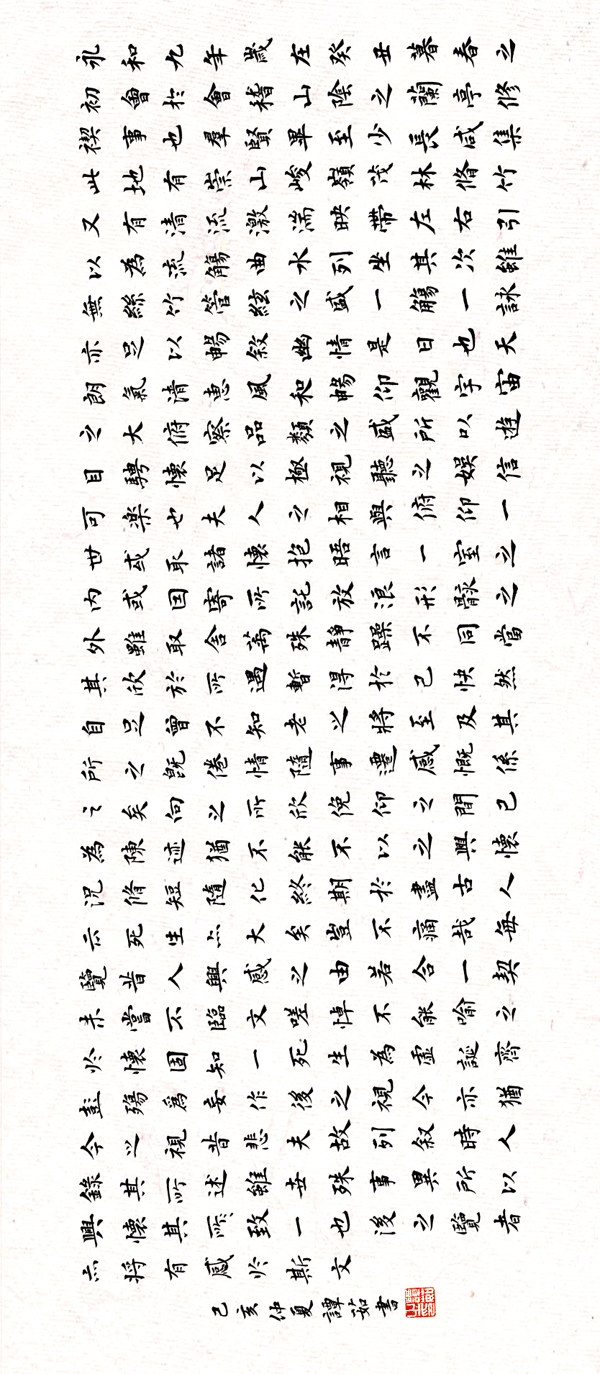 永和九年歲在癸丑暮春之
初會於會稽山陰之蘭亭修
禊事也羣賢畢至少長咸集
此地有崇山峻嶺茂林脩竹
又有清流激湍映帶左右引
以為流觴曲水列坐其次雖
無絲竹管絃之盛一觴一詠
亦足以暢敘幽情是日也天
朗氣清惠風和暢仰觀宇宙
之大俯察品類之盛所以遊
目騁懷足以極視聽之娛信
可樂也夫人之相與俯仰一
世或取諸懷抱晤言一室之
內或因寄所託放浪形骸之
外雖取舍萬殊靜躁不同當
其欣於所遇暫得於己快然
自足曾不知老之將至及其
所之既倦情隨事遷感慨係
之矣向之所欣俛仰之間已
為陳迹猶不能不以之興懷
況脩短隨化終期於盡古人
云死生亦大矣豈不痛哉每
覽昔人興感之由若合一契
未嘗不臨文嗟悼不能喻之
於懷固知一死生為虛誕齊
彭殤為妄作後之視今亦猶
今之視昔悲夫故列敘時人
錄其所述雖世殊事異所以
興懷其所致一也後之覽者
亦將有感於斯文
己亥仲夏譚茹書